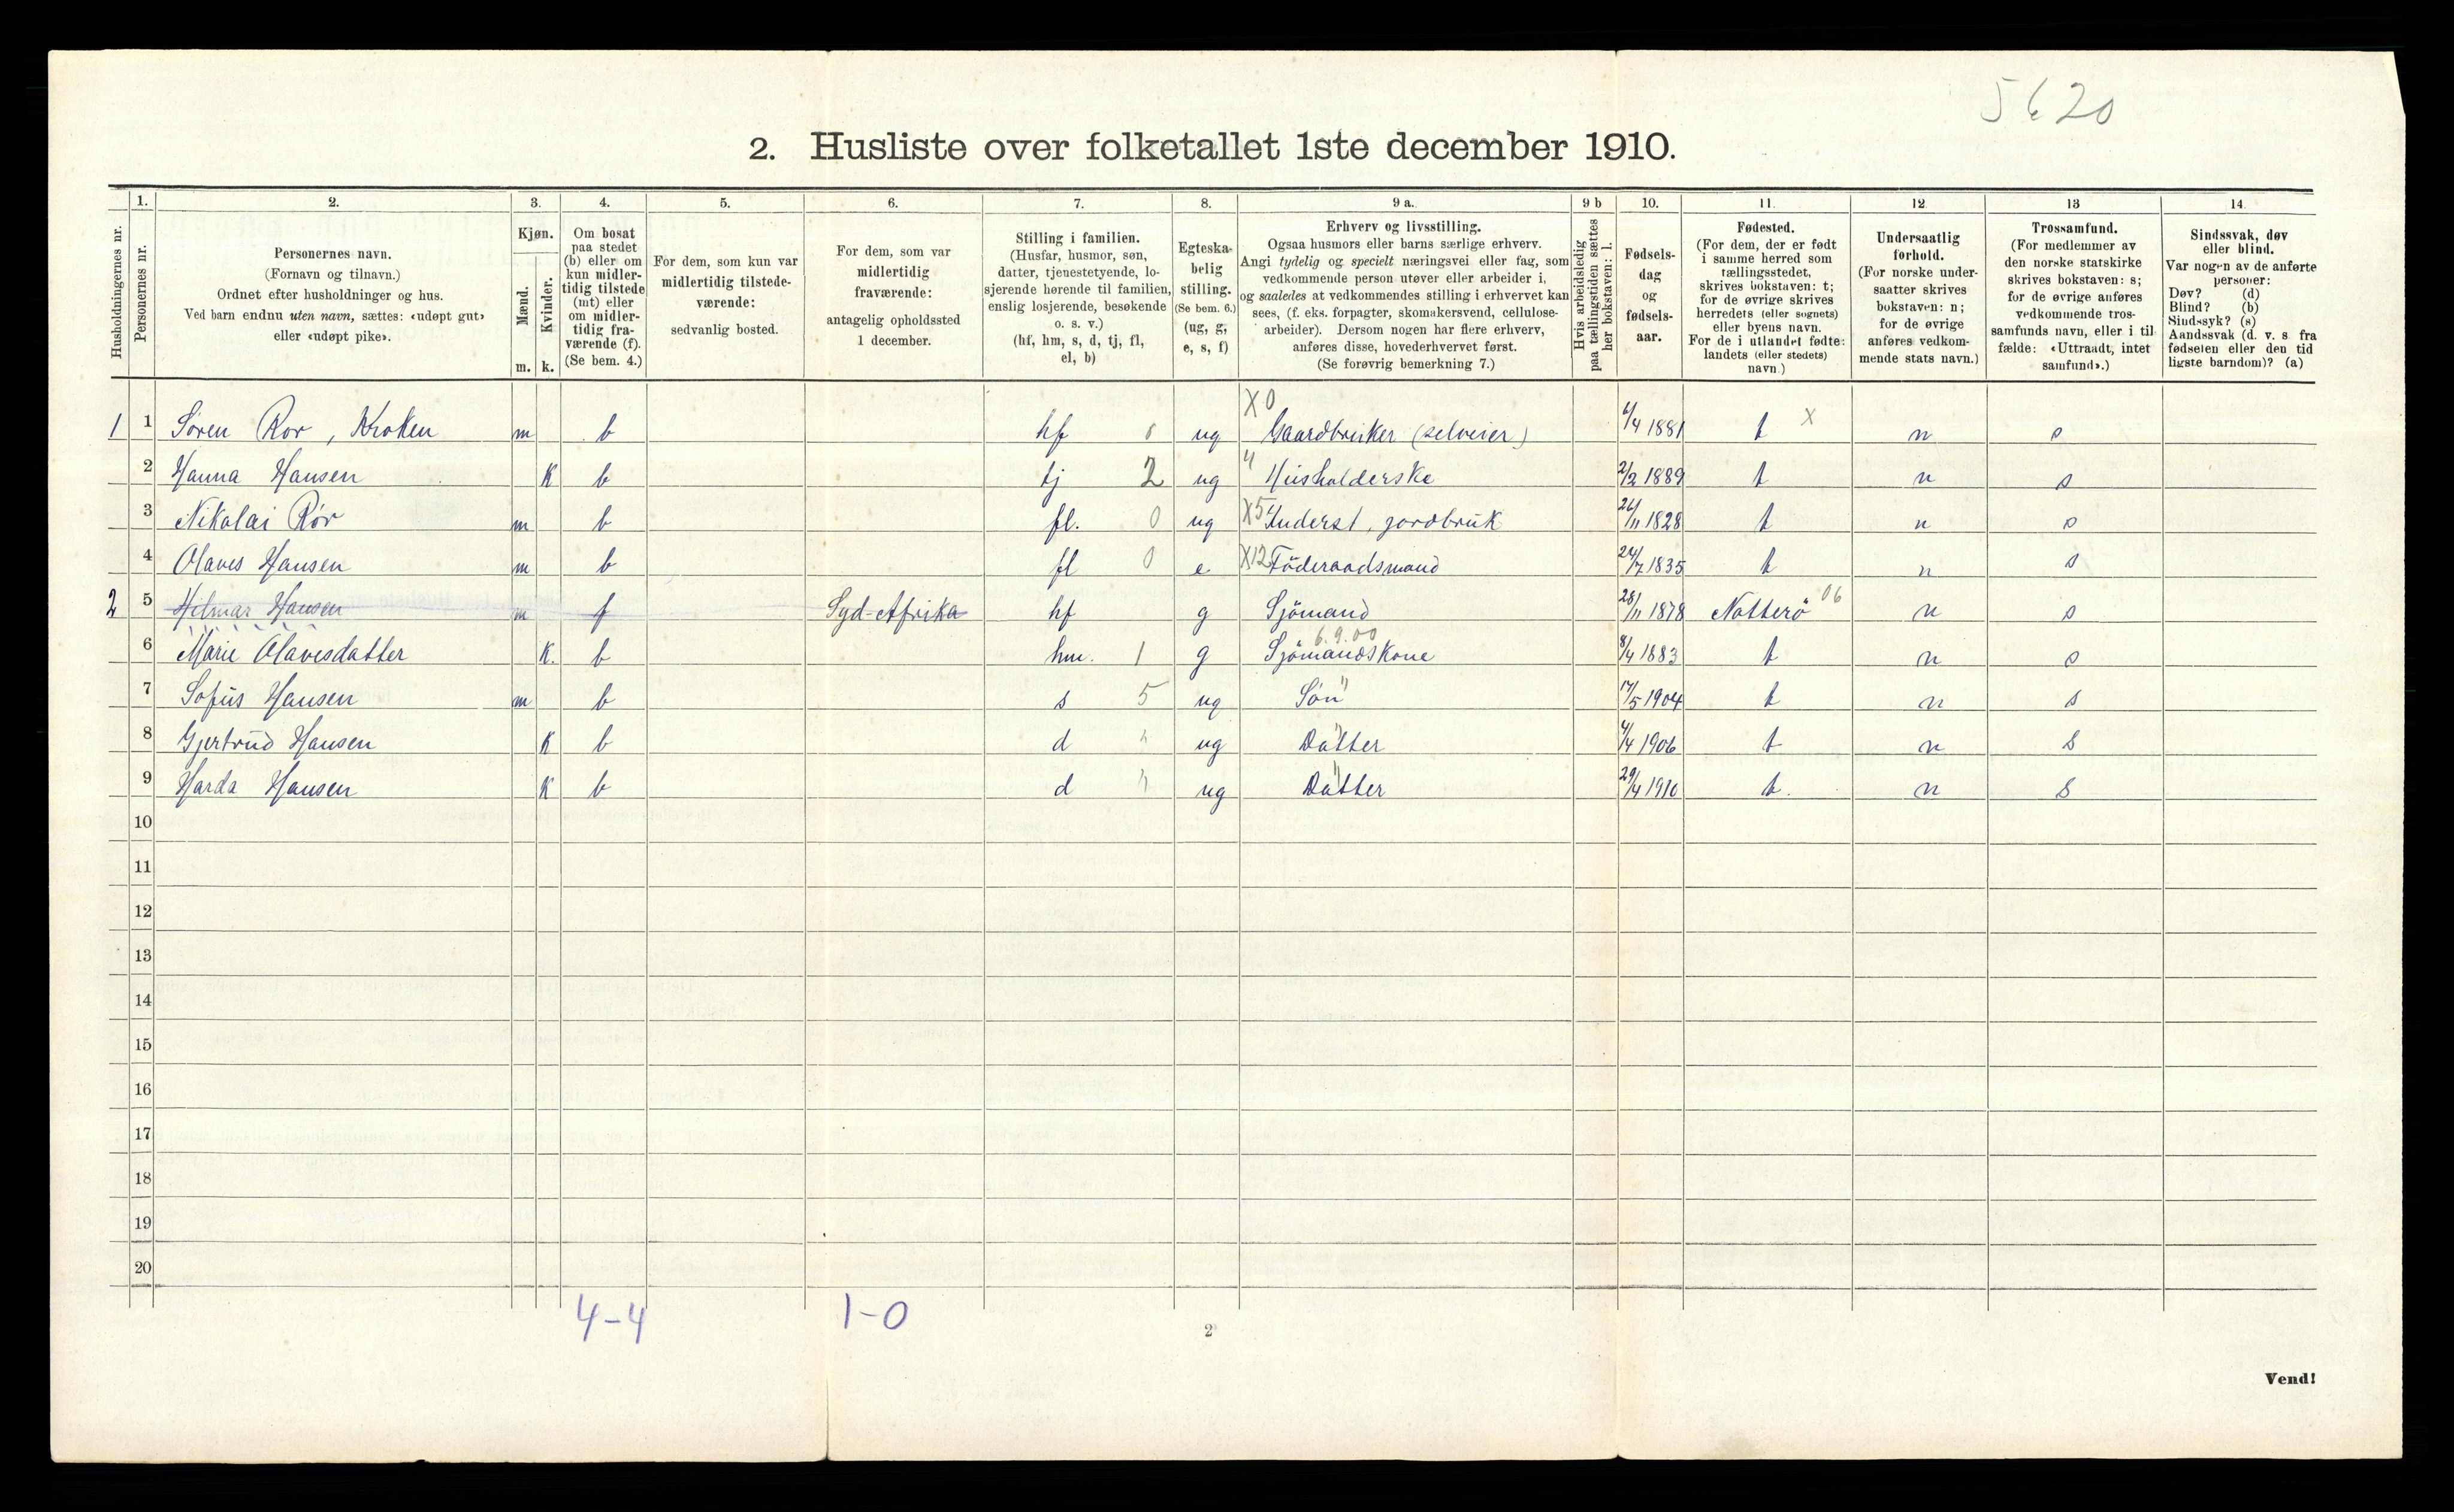 5620
2. Husliste over folketallet 1ste december 1910.
Husholdningernes nr.
1.
Personernes nr.
2.
Personernes navn.
(Fornavn og tilnavn.)
Ordnet efter husholdninger og hus.
Ved barn endnu uten navn, sættes: «udøpt gut»
eller «udøpt pike».
3.
Kjøn.
Mænd.
Kvinder.
m. k.
4.
Om bosat
paa stedet
(b) eller om
kun midler-
tidig tilstede
(mt) eller
om midler-
tidig fra-
værende (f).
(Se bem. 4.)
5.
For dem, som kun var
midlertidig tilstede-
værende:
sedvanlig bosted.
6.
For dem, som var
midlertidig
fraværende:
antagelig opholdssted
1 december.
7.
Stilling i familien.
(Husfar, husmor, søn,
datter, tjenestetyende, lo-
sjerende hørende til familien,
enslig losjerende, besøkende
o. s. v.)
(hf, hm, s, d, tj, fl,
el, b)
8.
Egteska-
belig
stilling.
(Se bem. 6.)
(ug, g,
e, s, f)
9 a.
Erhverv og livsstilling.
Ogsaa husmors eller barns særlige erhverv.
Angi tydelig og specielt næringsvei eller fag, som
vedkommende person utøver eller arbeider i,
og saaledes at vedkommendes stilling i erhvervet kan
sees, (f. eks. forpagter, skomakersvend, cellulose-
arbeider). Dersom nogen har flere erhverv,
anføres disse, hovederhvervet først.
(Se forøvrig bemerkning 7.)
9 b
Hvis arbeidsledig
paa tællingstiden sættes
her bokstaven: l.
10.
Fødsels-
dag
og
fødsels-
aar.
11.
Fødested.
(For dem, der er født
i samme herred som
tællingsstedet,
skrives bokstaven: t;
for de øvrige skrives
herredets (eller sognets)
eller byens navn.
For de i utlandet fødte:
landets (eller stedets)
navn.)
12.
Undersaatlig
forhold.
(For norske under-
saatter skrives
bokstaven: n;
for de øvrige
anføres vedkom-
mende stats navn.)
13
Trossamfund.
(For medlemmer av
den norske statskirke
skrives bokstaven: s;
for de øvrige anføres
vedkommende tros-
samfunds navn, eller i til
fælde: «Uttraadt, intet
samfund».)
14
Sindssvak, døv
eller blind.
Var nogen av de anførte
personer:
Døv? (d)
Blind? (b)
Sindssyk? (s)
Aandssvak (d. v. s fra
fødselen eller den tid
ligste barndom)? (a)
1 1 Søren Rør, Kroken m b hf 0 ug X0 Gaardbruker (selveier) 6/4 1881 t X n s
2 Hanna Hansen K b tj 2 ug 4 Husholderske 2/2 1889 t n s
3 Nikolai Rør m b fl. 0 ug X5 Inderst, jordbruk 26/11 1828 t n s
4 Olaves Hansen m b fl 0 e X12 Föderaadsmand 24/7 1835 t n s
2 5 Hilmar Hansen m f Syd-Afrika hf g Sjömand 28/11 1878 Nøtterö 06 n s
6 Marie Olavesdatter K. b hm. 1 g 6.9.00 Sjömandskone 8/4 1883 t n s
7 Sofus Hansen m b s 5 ug " Søn 17/5 1904 t n s
8 Gjertrud Hansen K b d " ug " Datter 4/4 1906 t n s
9 Harda Hansen K b d " ug " Datter 29/4 1910 t. n s
10
11
12
13
14
15
16
17
18
19
20
4-4 1-0
2
Vend!